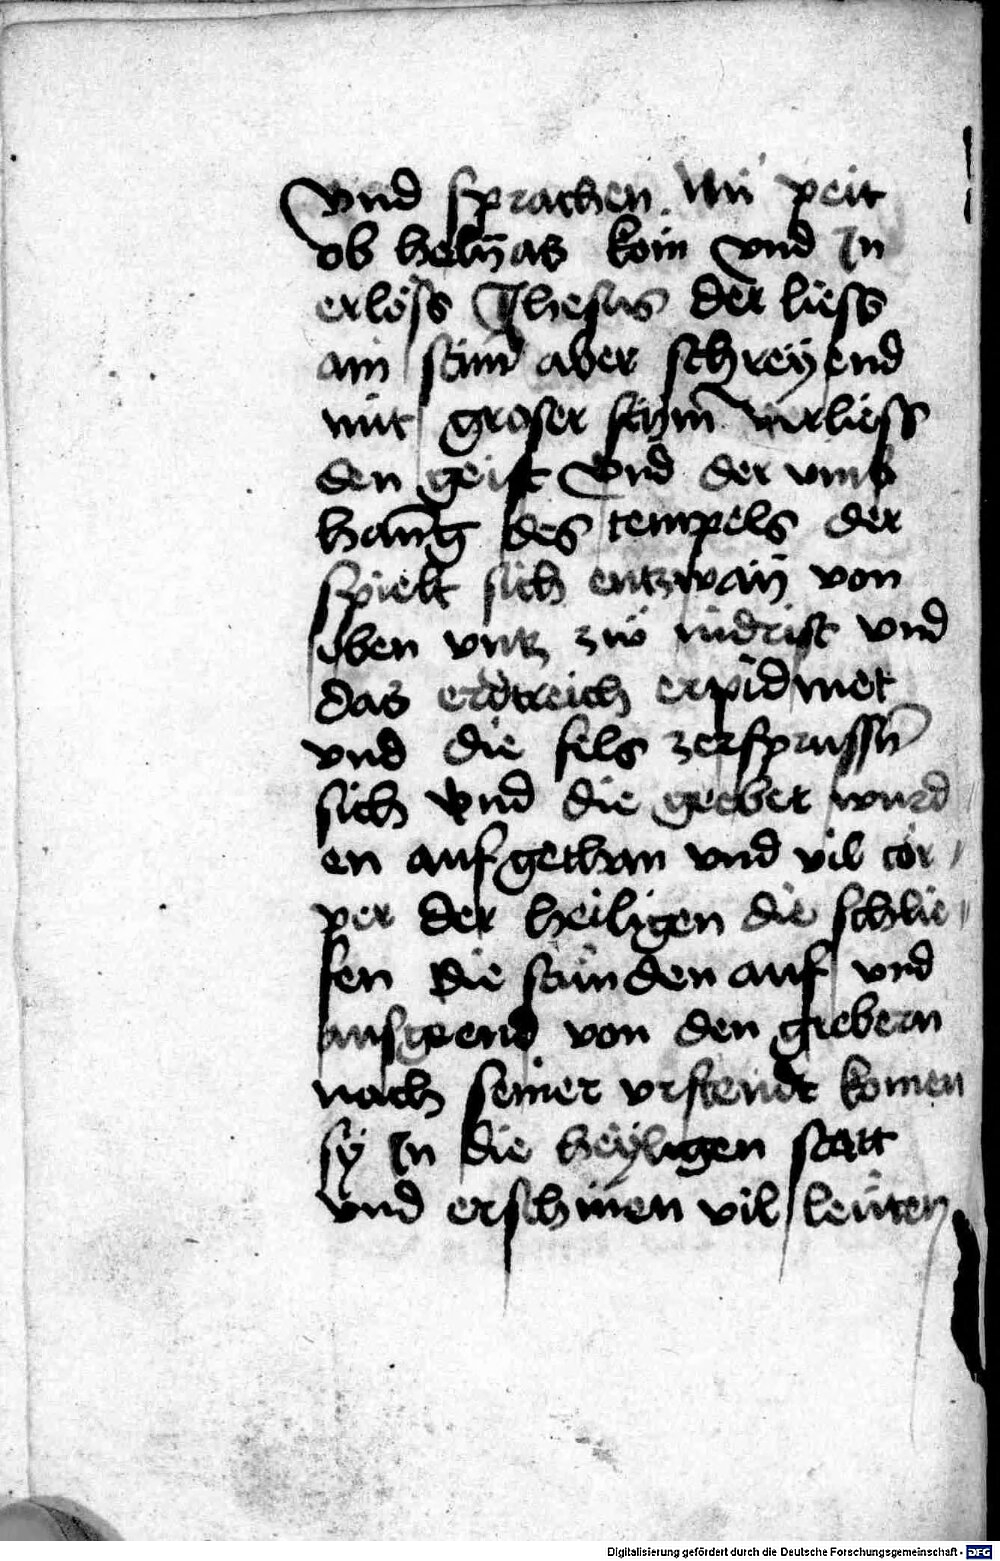 vnd sprachen Nu peit
ob helyas kom vnd In
erlöss Jhesus der liess
ain stim aber schreyend
mit groser stym verliess
den geist Vnd der vmb
hang des tempels der
spielt sich entzway von
oben vntz zw nidrist vnd
das erdtreich erpidmet
vnd die fels zersprussn
sich Vnd die greber wurd
en auf gethan vnd vil cor
per der heiligen die schlie
fen die stunden auf vnd
ausgeend von den grebern
nach seiner vrstendt komen
sy In die heyligen statt
vnd erschinen vil leuten
Digitalisierung gefördert durch die Deutsche Forschungsgemeinschaft - DFG